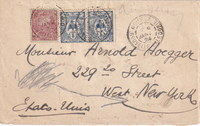 Monsieur Arnold Hoegger
229 20 Street
West New York
Etats-Unis